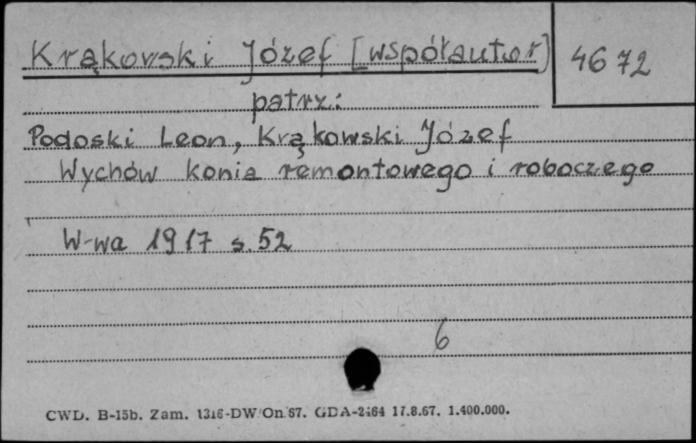 Krąkowski Józef [współautor]
4672
patrz:
Podoski Leon, Krąkowski Józef
Wychów konia remontowego i roboczego
W-wa 1917 s. 52
6
CWD. B-15b. Zam. 1316-DW/On/67. GDA-2464 17.8.67. 1.400.000.